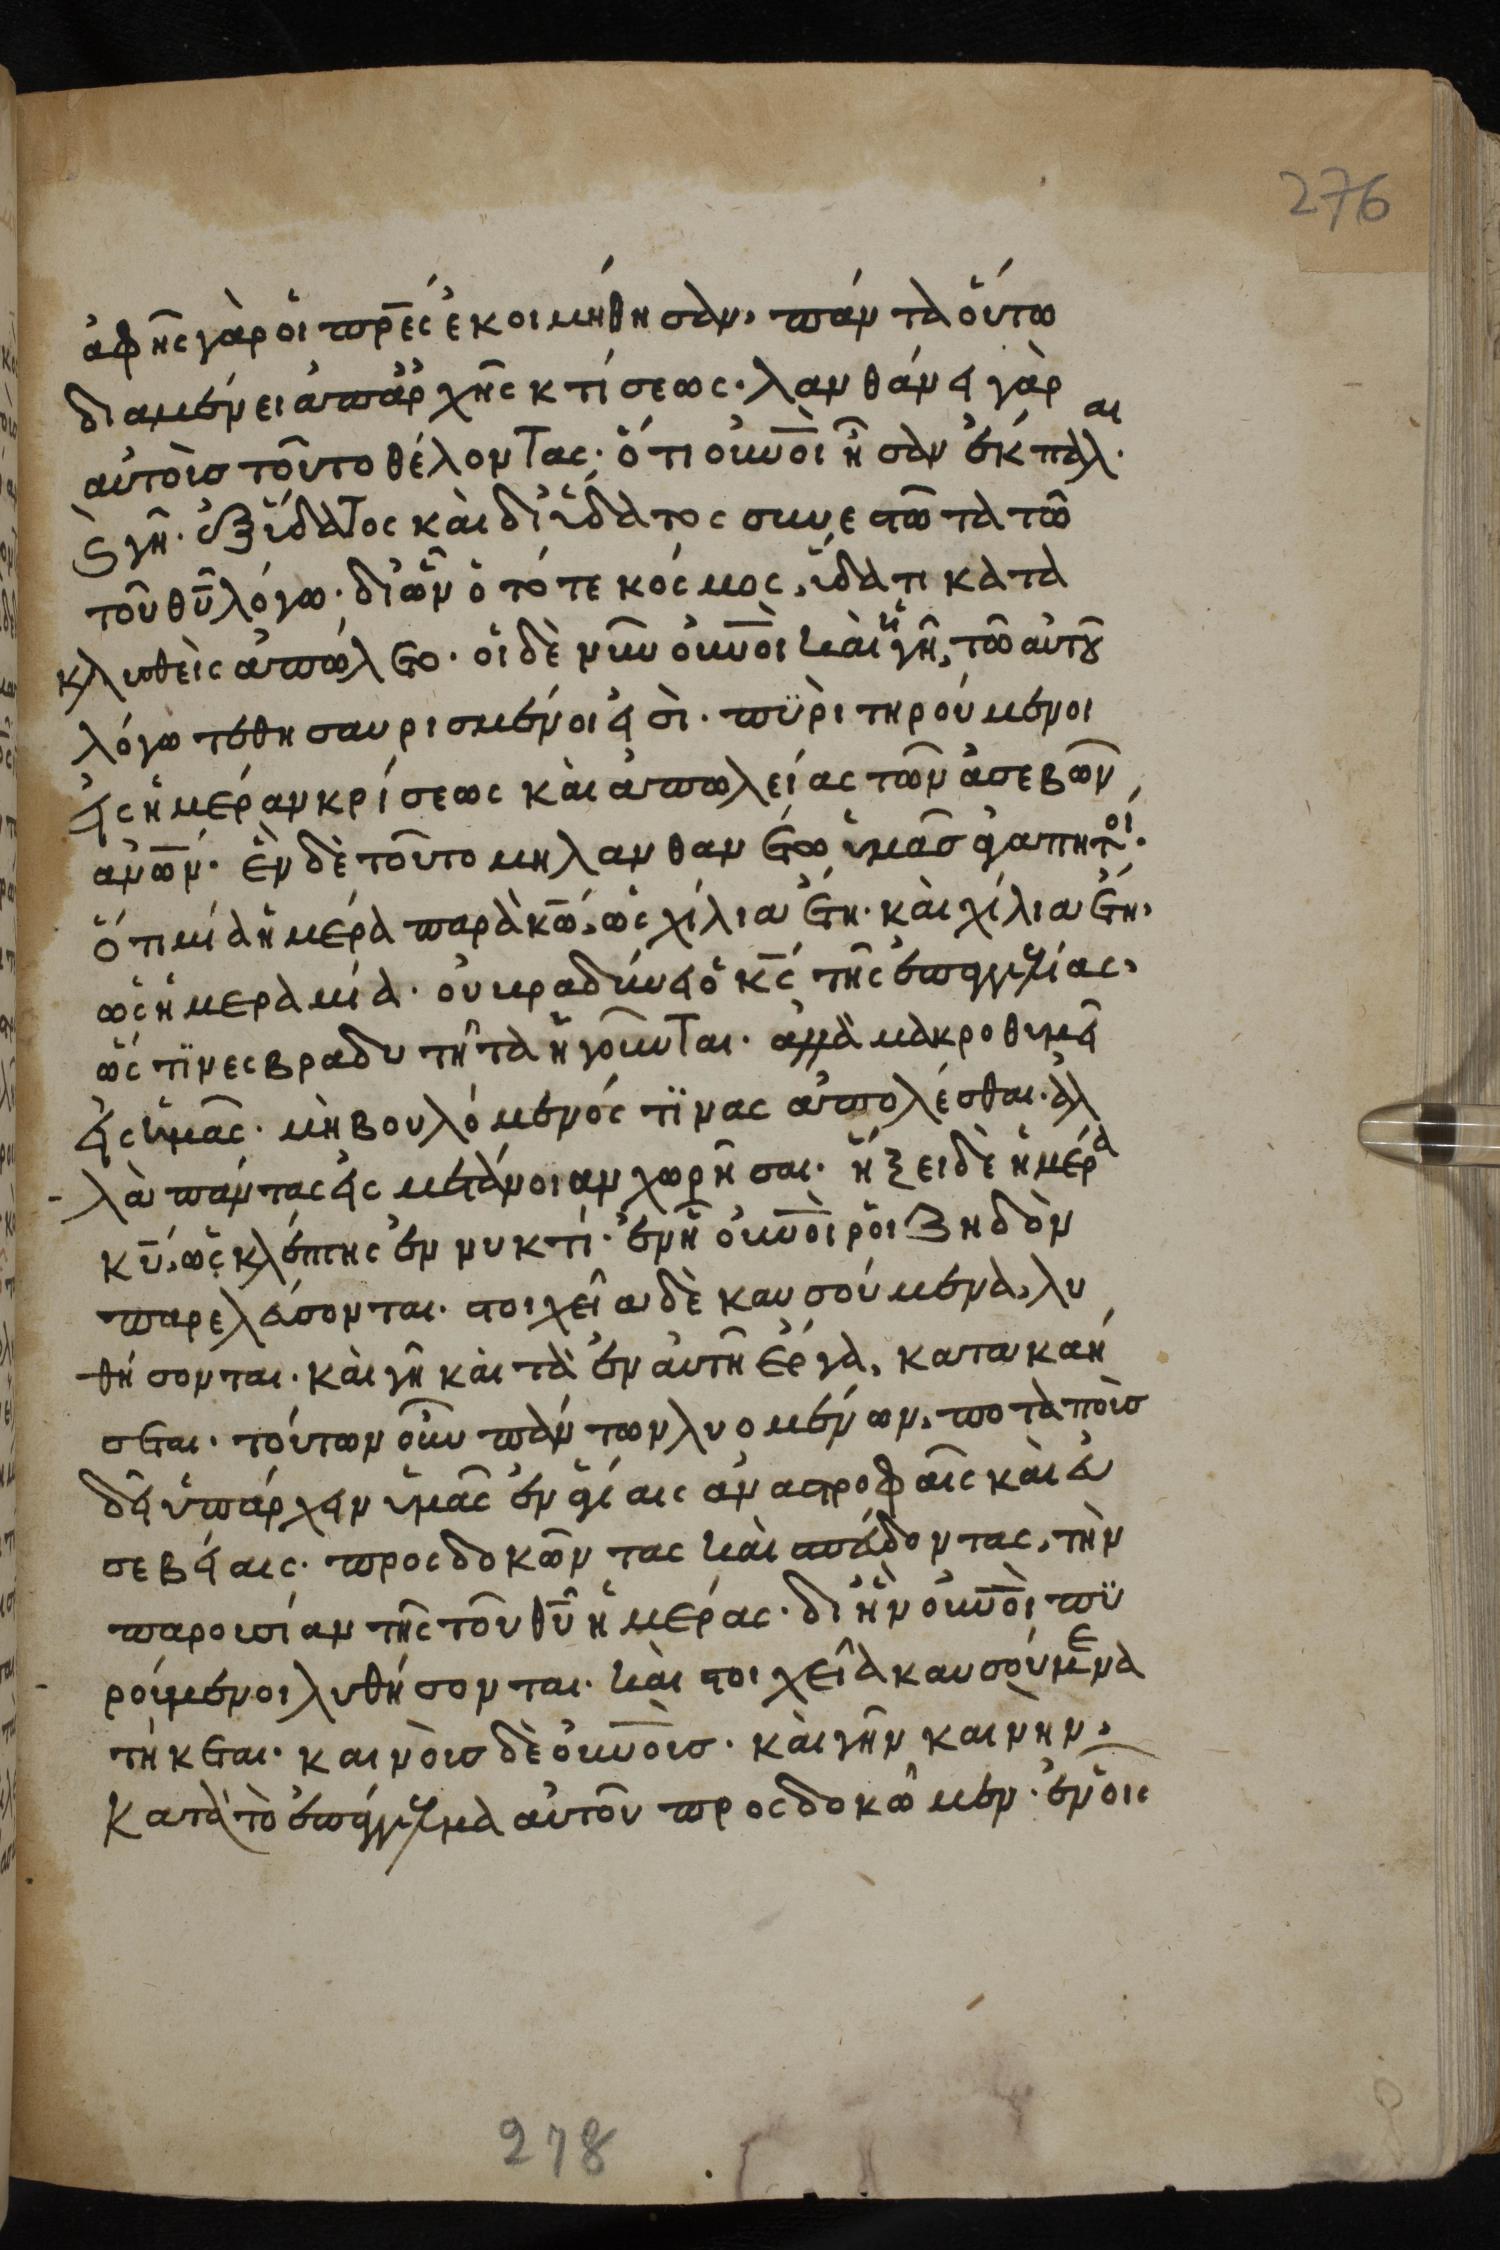 276
ἀφῆς γὰρ οἱ πρ̅ες ἐκοιμήθησαν, πάντα οὕτω
διαμένει ἀπ' ἀρχῆς κτίσεως· λανθάνει γὰρ
αὐτοὺς τοῦτο θέλοντας· ὅτι οὐ̅νοὶ ἦσαν ἔκπαλαι·
ϗ γῆ· ἐξ ὕδατος καὶ δι' ὕδατος συνεστῶτα τῶ
τοῦ θ̅υ λόγω· δι' ὧν ὁ τότε κόσμος, ὕδατι κατα
κλυσθεὶς ἀπώλετο· οἱ δὲ νῦν οὐ̅νοὶ καὶ ἡ γῆ, τῶ αὐτοῦ
λόγω τεθησαυρισμένοι εἰσὶ· πϋρὶ τηρούμενοι
εἰς ἡμέραν κρίσεως καὶ ἀπωλείας τῶν ἀσεβῶν
α̅νω̅ν· ἓν δὲ τοῦτο μὴ λανθανέτω ὑμᾶς ἀγαπητοί·
ὅτι μία ἡμέρα παρὰ κ̅ω, ὡς χίλια ἔτη· καὶ χίλια ἔτη,
ὡς ἡμέρα μία· οὐ βραδύνει ὁ κ̅ς τῆς ἐπαγγελίας,
ὥς τϊνες βραδυτῆτα ἡγοῦνται· ἀλλὰ μακροθυμεῖ
εἰς ὑμᾶς· μὴ βουλόμενός τϊνας ἀπολέσθαι· ἀλ
λὰ πάντας εἰς μετάνοιαν χωρῆσαι· ἥξει δὲ ἡμέρα
κ̅υ, ὡς κλέπτης ἐν νυκτί· ἐν ἧ οὐ̅νοὶ ῥοιζηδὸν
παρελεύσονται· στοιχεῖα δὲ καυσούμενα, λυ
θήσονται· καὶ γῆ καὶ τὰ ἐν αὐτῆ ἔργα, κατακαή
σεται· τούτων οὖν πάντων λυομένων, ποταποὺς
δεῖ ὑπάρχειν ὑμᾶς ἐν ἁγίαις ἀναστροφαῖς καὶ εὐ
σεβείαις· προσδοκῶντας καὶ σπεύδοντας, τὴν
παρουσίαν τῆς τοῦ θ̅υ ἡμέρας· δι' ἣν οὐ̅νοὶ πϋ
ρούμενοι λυθήσονται· καὶ στοιχεῖα καυσούμενα
τήκεται· καινοὺς δὲ οὐ̅νοὺς· καὶ γῆν καινὴν,
Κατὰ τὸ ἐπάγγελμα αὐτοῦ προσδοκῶμεν· ἐν οἷς
278